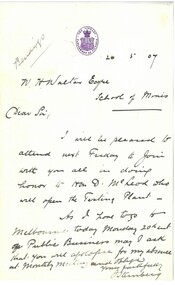 20 5 07
W H Walters Esqre
School of Mines
Dear Sir,
I will be pleased to
attend next Friday to join
with you all in doing
honor to Hon D. McLeod who
will open the Testing Plant —
As I have to go to
Melbourne today Monday 20 inst
on Public Business may I ask
that you will apologise for my absence
at Monthly Meeting and oblige
yours faithfully